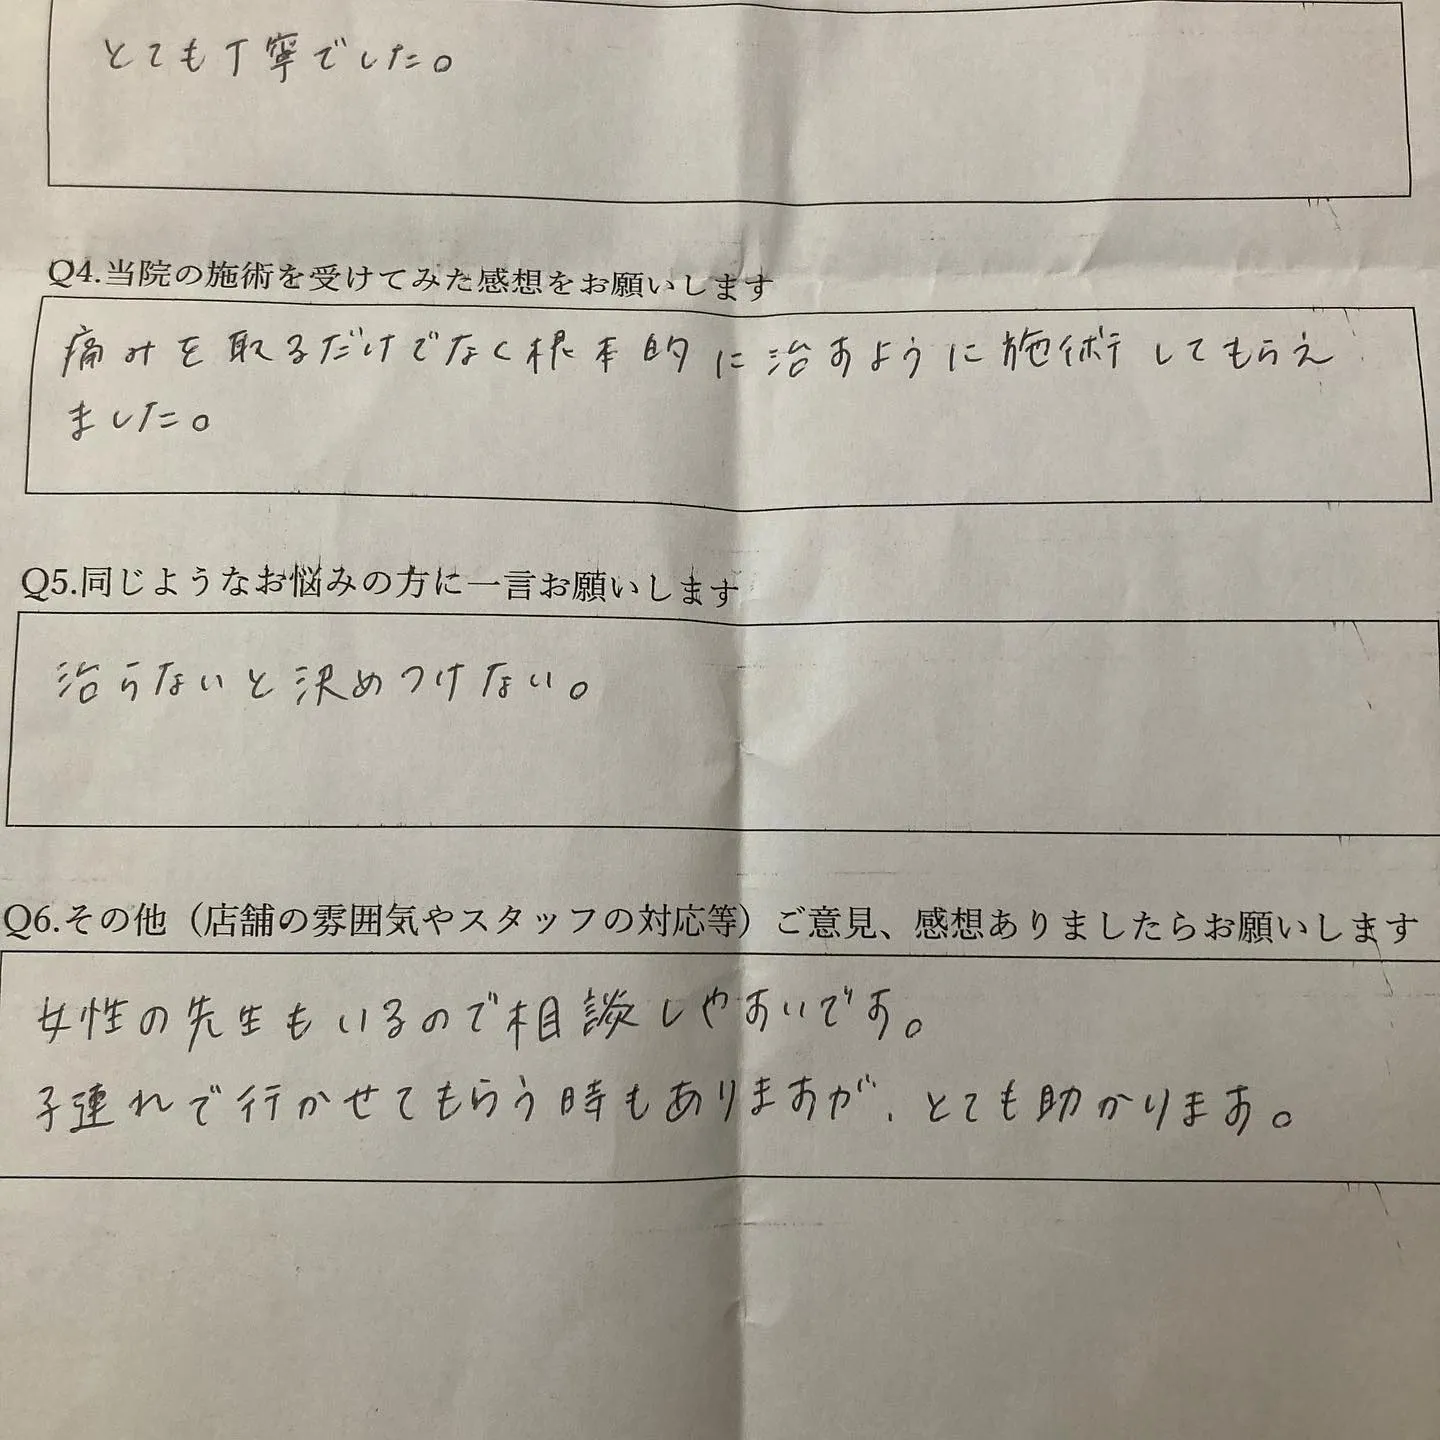 とても丁寧でした。
Q4.当院の施術を受けてみた感想をお願いします
痛みを取るだけでなく根本的に治すように施術してもらえ
ました。
Q5.同じようなお悩みの方に一言お願いします
治らないと決めつけない。
Q6.その他（店舗の雰囲気やスタッフの対応等）ご意見、感想ありましたらお願いします
女性の先生もいるので相談しやすいです。
子連れで行かせてもらう時もありますが、とても助かります。